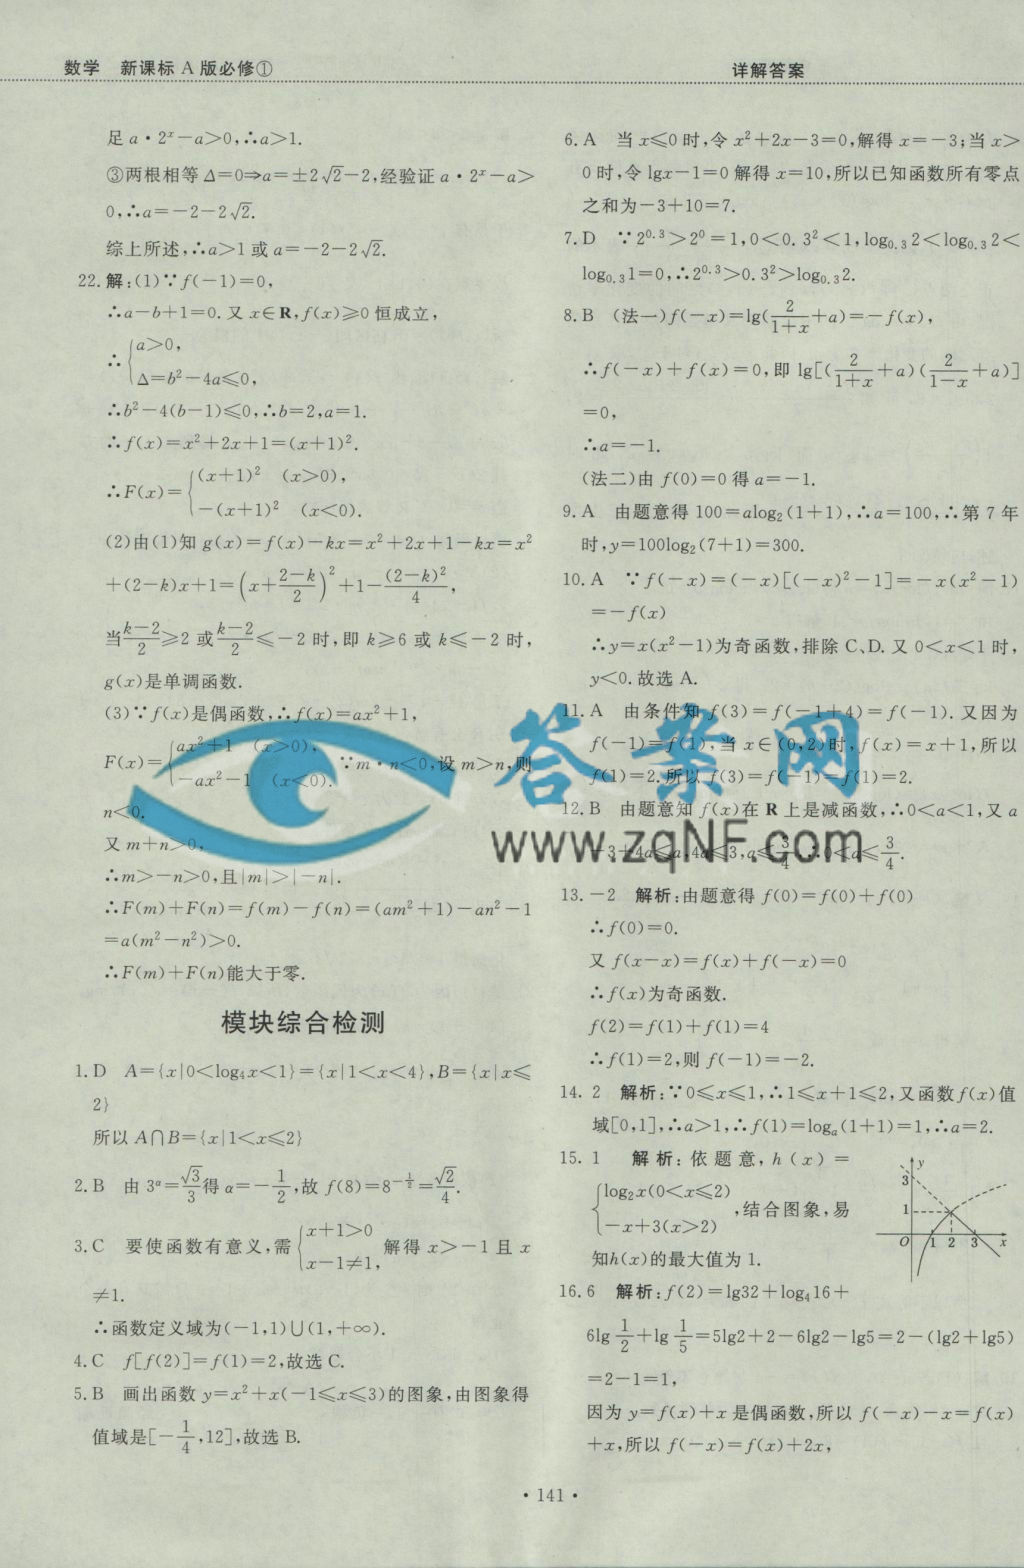 数学 新课标 A 版必修①
详解答案
足 a·2ˣ-a>0,∴a>1.
③两根相等 Δ=0⇒a=±2√2-2,经验证 a·2ˣ-a>
0,∴a=-2-2√2.
综上所述,∴a>1 或 a=-2-2√2.
22.解:(1)∵f(-1)=0,
∴a-b+1=0.又 x∈R,f(x)≥0 恒成立,
∴{a>0,
Δ=b²-4a≤0,
∴b²-4(b-1)≤0,∴b=2,a=1.
∴f(x)=x²+2x+1=(x+1)².
∴F(x)={(x+1)² (x>0),
-(x+1)² (x<0).
(2)由(1)知 g(x)=f(x)-kx=x²+2x+1-kx=x²
+(2-k)x+1=(x+(2-k)/2)²+1-(2-k)²/4,
当(k-2)/2≥2 或(k-2)/2≤-2 时,即 k≥6 或 k≤-2 时,
g(x)是单调函数.
(3)∵f(x)是偶函数,∴f(x)=ax²+1,
F(x)={ax²+1 (x>0),
-ax²-1 (x<0). ∵m·n<0,设 m>n,则
n<0.
又 m+n>0,
∴m>-n>0,且|m|>|-n|.
∴F(m)+F(n)=f(m)-f(n)=(am²+1)-an²-1
=a(m²-n²)>0.
∴F(m)+F(n)能大于零.
模块综合检测
1.D A={x|0<log₄x<1}={x|1<x<4},B={x|x≤
2}
所以 A∩B={x|1<x≤2}
2.B 由 3^α=√3/3得 α=-1/2,故 f(8)=8^(-1/2)=√2/4.
3.C 要使函数有意义,需{x+1>0
x-1≠1, 解得 x>-1 且 x
≠1.
∴函数定义域为(-1,1)∪(1,+∞).
4.C f[f(2)]=f(1)=2,故选 C.
5.B 画出函数 y=x²+x(-1≤x≤3)的图象,由图象得
值域是[-1/4,12],故选 B.
6.A 当 x≤0 时,令 x²+2x-3=0,解得 x=-3;当 x>
0 时,令 lgx-1=0 解得 x=10,所以已知函数所有零点
之和为-3+10=7.
7.D ∵2^0.3>2⁰=1,0<0.3²<1,log₀.₃2<log₀.₃2<
log₀.₃1=0,∴2^0.3>0.3²>log₀.₃2.
8.B (法一)f(-x)=lg(2/(1+x)+a)=-f(x),
∴f(-x)+f(x)=0,即 lg[(2/(1+x)+a)(2/(1-x)+a)]
=0,
∴a=-1.
(法二)由 f(0)=0 得 a=-1.
9.A 由题意得 100=alog₂(1+1),∴a=100,∴第 7 年
时,y=100log₂(7+1)=300.
10.A ∵f(-x)=(-x)[(-x)²-1]=-x(x²-1)
=-f(x)
∴y=x(x²-1)为奇函数,排除 C、D.又 0<x<1 时,
y<0.故选 A.
11.A 由条件知 f(3)=f(-1+4)=f(-1).又因为
f(-1)=f(1),当 x∈(0,2)时,f(x)=x+1,所以
f(1)=2.所以 f(3)=f(-1)=f(1)=2.
12.B 由题意知 f(x)在 R 上是减函数,∴0<a<1,又 a
-3+4a≤a,4a≤3,a≤3/4,∴0<a≤3/4.
13.-2 解析:由题意得 f(0)=f(0)+f(0)
∴f(0)=0.
又 f(x-x)=f(x)+f(-x)=0
∴f(x)为奇函数.
f(2)=f(1)+f(1)=4
∴f(1)=2,则 f(-1)=-2.
14.2 解析:∵0≤x≤1,∴1≤x+1≤2,又函数 f(x)值
域[0,1],∴a>1,∴f(1)=logₐ(1+1)=1,∴a=2.
15.1 解析:依题意,h(x)=
{log₂x(0<x≤2)
-x+3(x>2) ,结合图象,易
知h(x)的最大值为 1.
y
3
1
O 1 2 3 x
16.6 解析:f(2)=lg32+log₄16+
6lg 1/2+lg 1/5=5lg2+2-6lg2-lg5=2-(lg2+lg5)
=2-1=1,
因为 y=f(x)+x 是偶函数,所以 f(-x)-x=f(x)
+x,所以 f(-x)=f(x)+2x,
·141·
答案网
www.zqNF.com